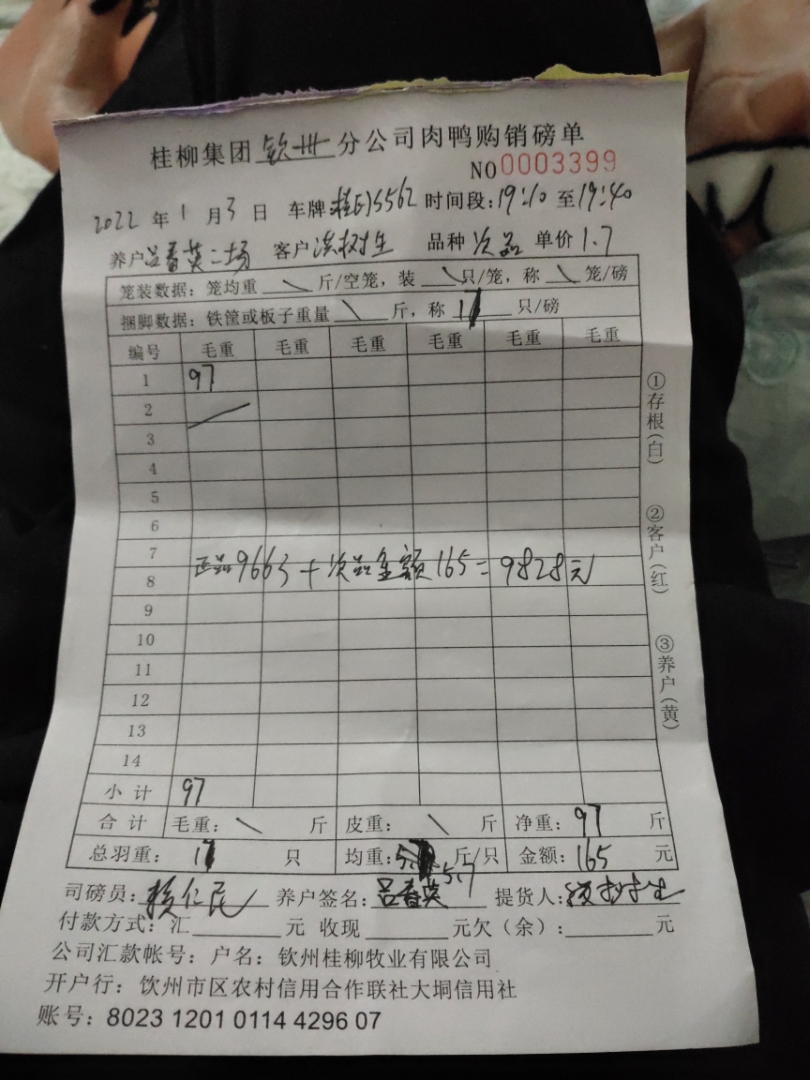 桂柳集团 钦州 分公司肉鸭购销磅单
NO 0003399
2022 年 1 月 3 日 车牌 5562 时间段:19:10 至 19:40
养户 吕春英二场 客户 洪树生 品种 次品 单价 1.7
笼装数据:笼均重 \ 斤/空笼,装 \ 只/笼,称 \ 笼/磅
捆脚数据:铁筐或板子重量 \ 斤,称 17 只/磅
编号 毛重 毛重 毛重 毛重 毛重 毛重
1 97
2
3
4
5
6
7
正品9663+次品金额165=9828元
8
9
10
11
12
13
14
小计 97
合计 毛重: \ 斤 皮重: \ 斤 净重: 97 斤
总羽重: 17 只 均重: 5.7 斤/只 金额: 165 元
司磅员: 赖仁民 养户签名: 吕春英 提货人:
付款方式:汇 元 收现 元欠(余): 元
公司汇款帐号:户名:钦州桂柳牧业有限公司
开户行:钦州市区农村信用合作联社大垌信用社
账号:8023 1201 0114 4296 07
①存根(白)
②客户(红)
③养户(黄)